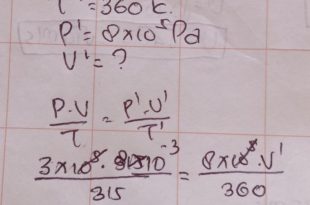 T' = 360 K.
P' = 8×10⁵ Pa
V' = ?
P·V / T = P'·V' / T'
3×10⁵ · 10⁻³ / 315 = 8×10⁵ · V' / 360